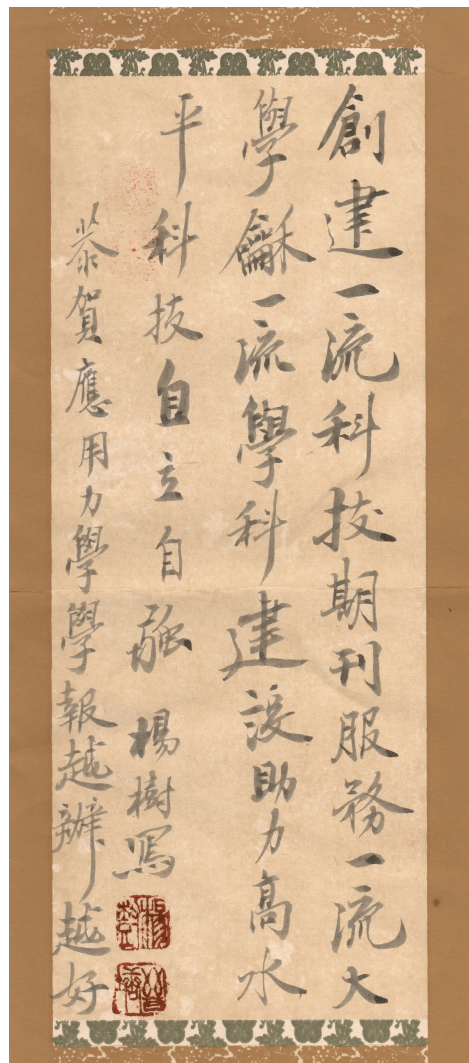 創建一流科技期刊服務一流大
學龢一流學科建設助力高水
平科技自立自強 楊樹寫
恭賀應用力學學報越辦越好